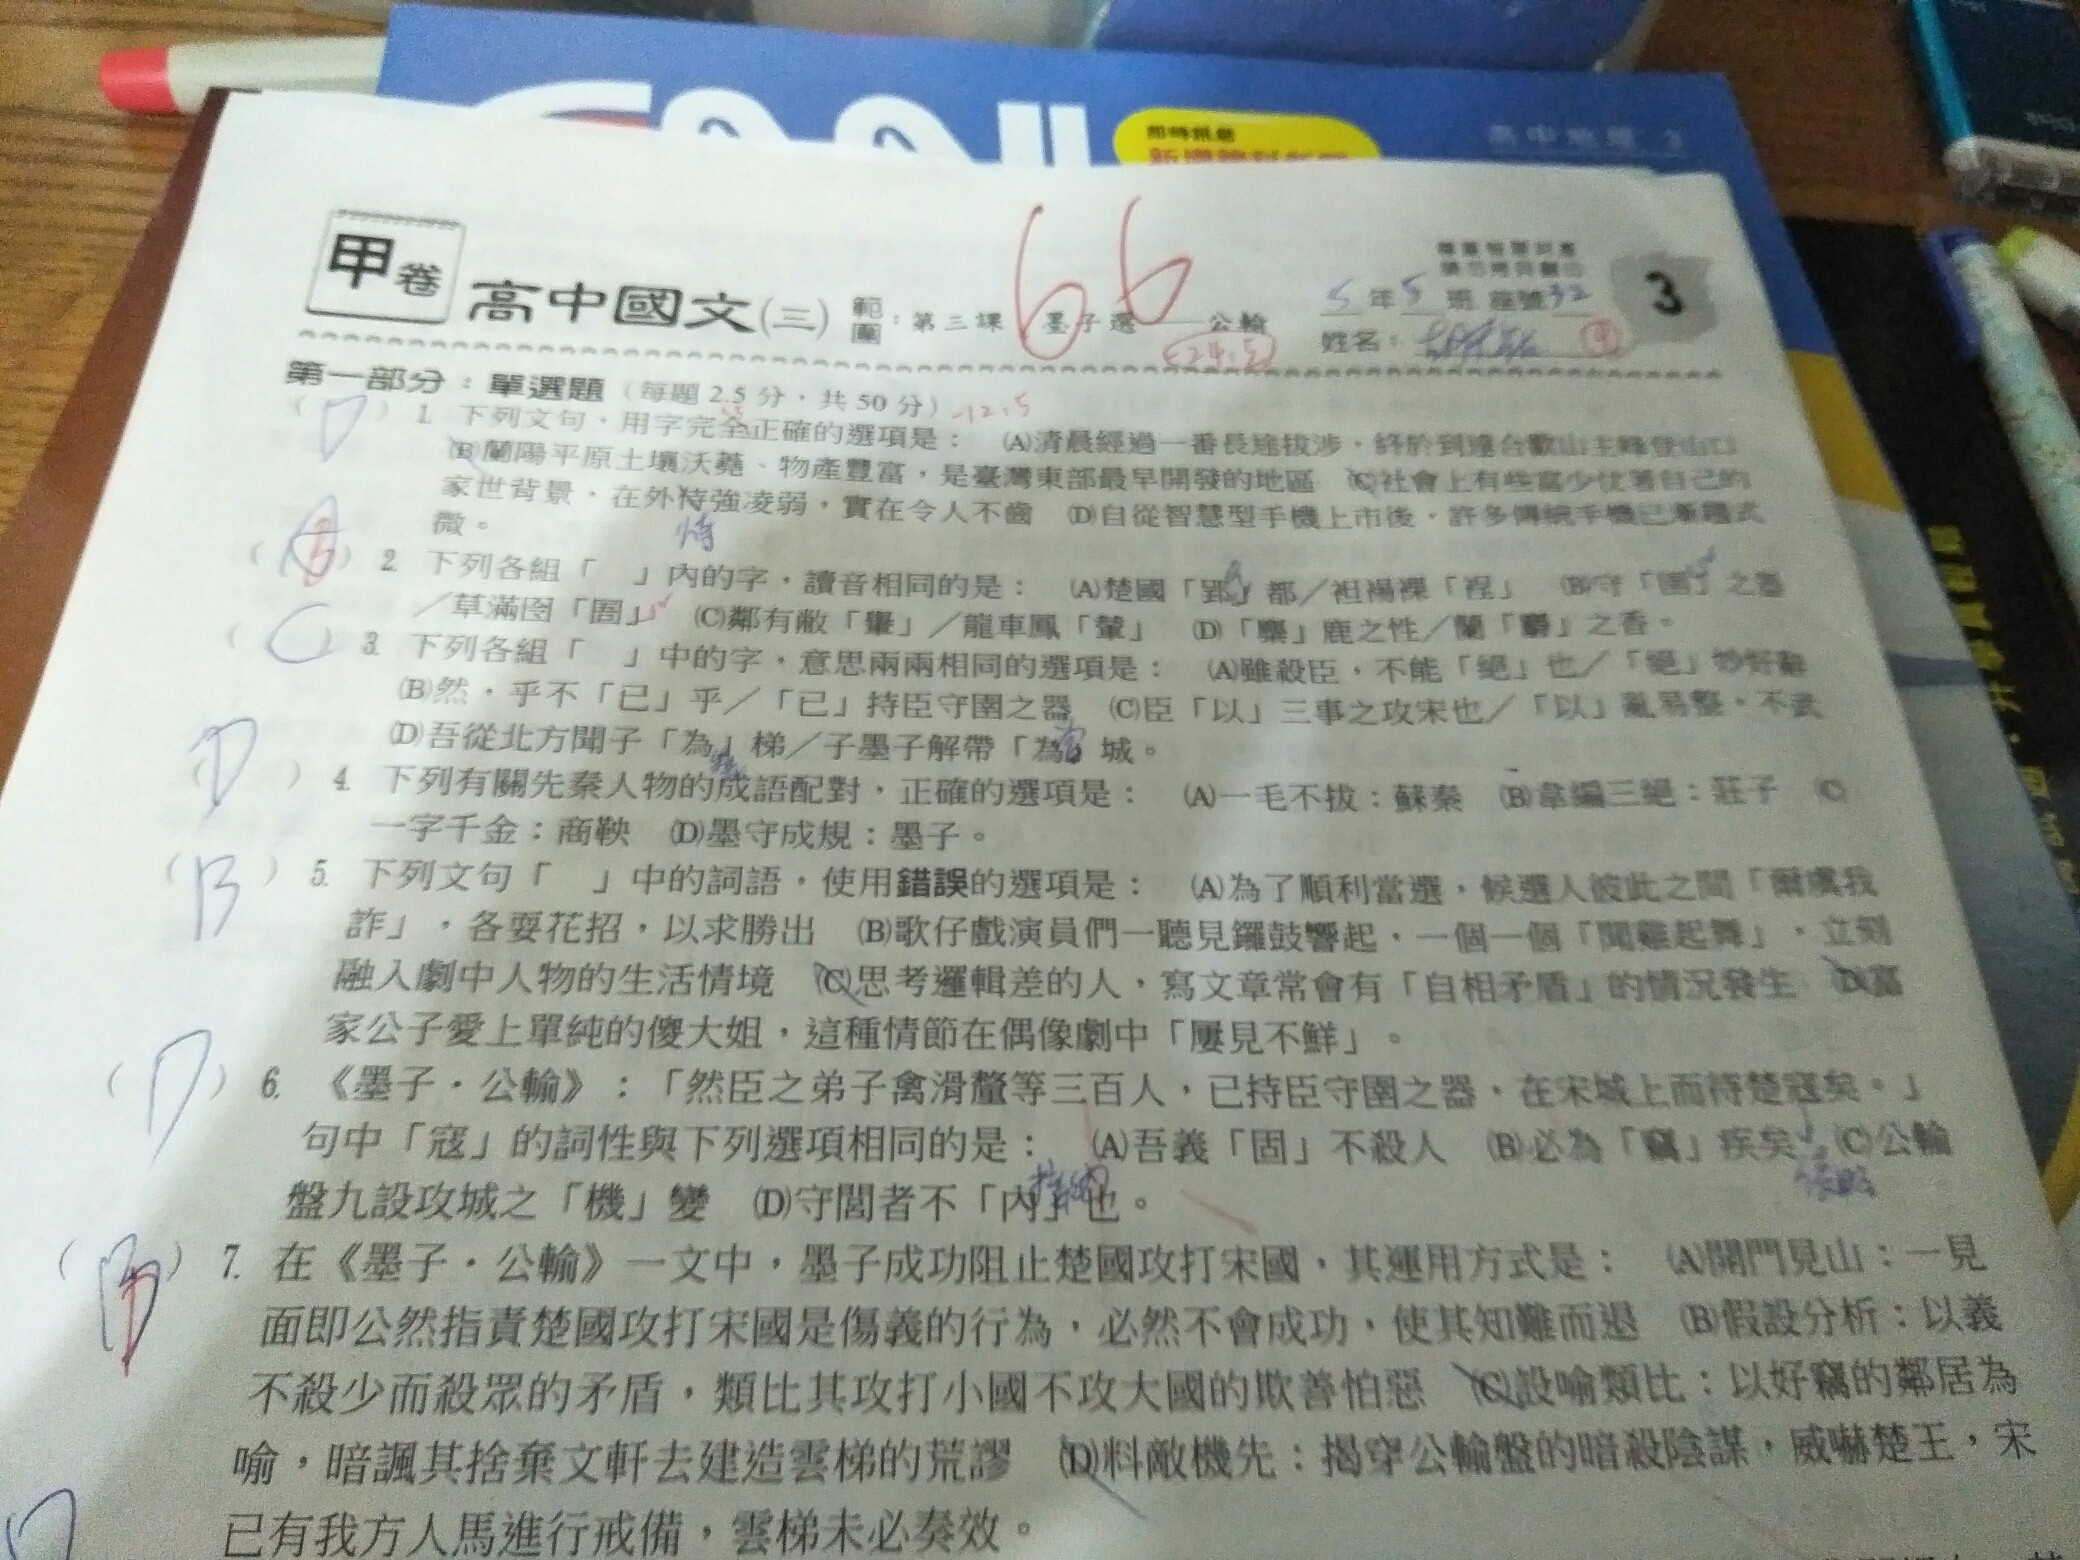 即時訊息
高中地理 2
甲卷 高中國文(三) 範圍：第三課 墨子選——公輸
66
5年5班 座號32
姓名：
3
第一部分：單選題（每題2.5分，共50分）-12.5
(D) 1. 下列文句，用字完全正確的選項是： (A)清晨經過一番長途拔涉，終於到達合歡山主峰登山口
(B)蘭陽平原土壤沃蕘、物產豐富，是臺灣東部最早開發的地區 (C)社會上有些富少仗著自己的
家世背景，在外待強凌弱，實在令人不齒 (D)自從智慧型手機上市後，許多傳統手機已漸趨式
微。
恃
(B) 2. 下列各組「 」內的字，讀音相同的是： (A)楚國「郢」都／袒裼裸「裎」 (B)守「圉」之器
／草滿囹「圄」 (C)鄰有敝「轝」／龍車鳳「輦」 (D)「麋」鹿之性／蘭「麝」之香。
(C) 3. 下列各組「 」中的字，意思兩兩相同的選項是： (A)雖殺臣，不能「絕」也／「絕」妙好辭
(B)然，乎不「已」乎／「已」持臣守圉之器 (C)臣「以」三事之攻宋也／「以」亂易整，不武
(D)吾從北方聞子「為」梯／子墨子解帶「為」城。
(D) 4. 下列有關先秦人物的成語配對，正確的選項是： (A)一毛不拔：蘇秦 (B)韋編三絕：莊子 (C)
一字千金：商鞅 (D)墨守成規：墨子。
(B) 5. 下列文句「 」中的詞語，使用錯誤的選項是： (A)為了順利當選，候選人彼此之間「爾虞我
詐」，各耍花招，以求勝出 (B)歌仔戲演員們一聽見鑼鼓響起，一個一個「聞雞起舞」，立刻
融入劇中人物的生活情境 (C)思考邏輯差的人，寫文章常會有「自相矛盾」的情況發生 (D)富
家公子愛上單純的傻大姐，這種情節在偶像劇中「屢見不鮮」。
(D) 6. 《墨子．公輸》：「然臣之弟子禽滑釐等三百人，已持臣守圉之器，在宋城上而待楚寇矣。」
句中「寇」的詞性與下列選項相同的是： (A)吾義「固」不殺人 (B)必為「竊」疾矣 (C)公輸
盤九設攻城之「機」變 (D)守閭者不「內」也。
(B) 7. 在《墨子．公輸》一文中，墨子成功阻止楚國攻打宋國，其運用方式是： (A)開門見山：一見
面即公然指責楚國攻打宋國是傷義的行為，必然不會成功，使其知難而退 (B)假設分析：以義
不殺少而殺眾的矛盾，類比其攻打小國不攻大國的欺善怕惡 (C)設喻類比：以好竊的鄰居為
喻，暗諷其捨棄文軒去建造雲梯的荒謬 (D)料敵機先：揭穿公輸盤的暗殺陰謀，威嚇楚王，宋
已有我方人馬進行戒備，雲梯未必奏效。